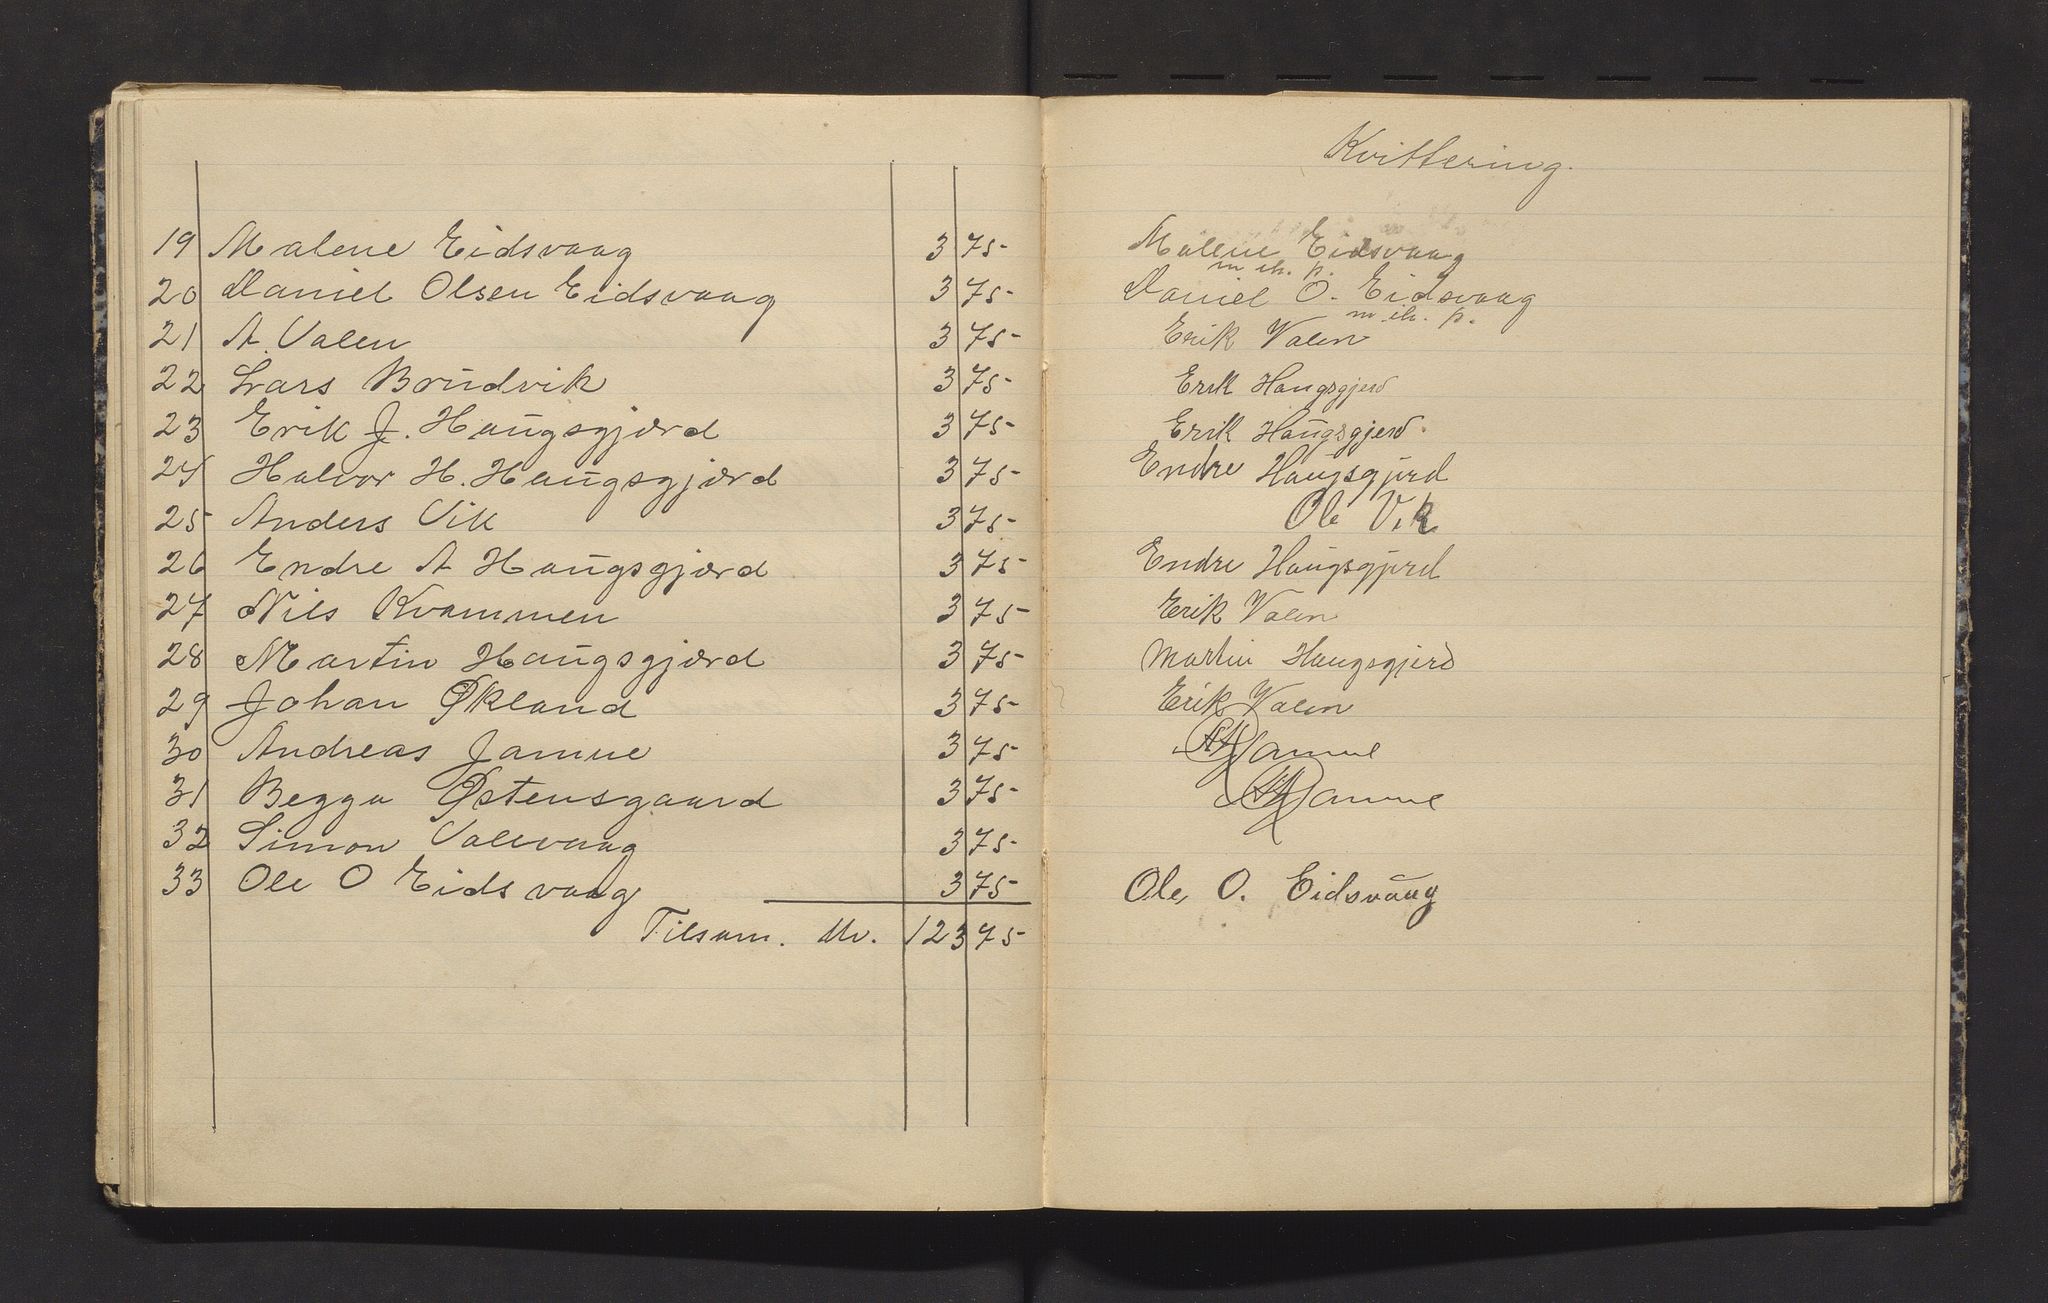 19 Malene Eidsvaag 3 75
20 Daniel Olsen Eidsvaag 3 75
21 A. Valen 3 75
22 Lars Brudvik 3 75
23 Erik J. Haugsgjærd 3 75
24 Halvor H. Haugsgjærd 3 75
25 Anders Vik 3 75
26 Endre A Haugsgjærd 3 75
27 Nils Kvammen 3 75
28 Martin Haugsgjærd 3 75
29 Johan Økland 3 75
30 Andreas Jamne 3 75
31 Begga Østensgaard 3 75
32 Simon Valevaag 3 75
33 Ole O Eidsvaag 3 75
Tilsam. Kr. 123 75
Kvittering.
Malene Eidsvaag
m. ih. p.
Daniel O. Eidsvaag
m. ih. p.
Erik Valen
Erik Haugsgjerd
Erik Haugsgjerd.
Endre Haugsgjerd
Ole Vik
Endre Haugsgjerd
Erik Valen
Martin Haugsgjerd
Erik Valen
Jamne
Jamne
Ole O. Eidsvaag